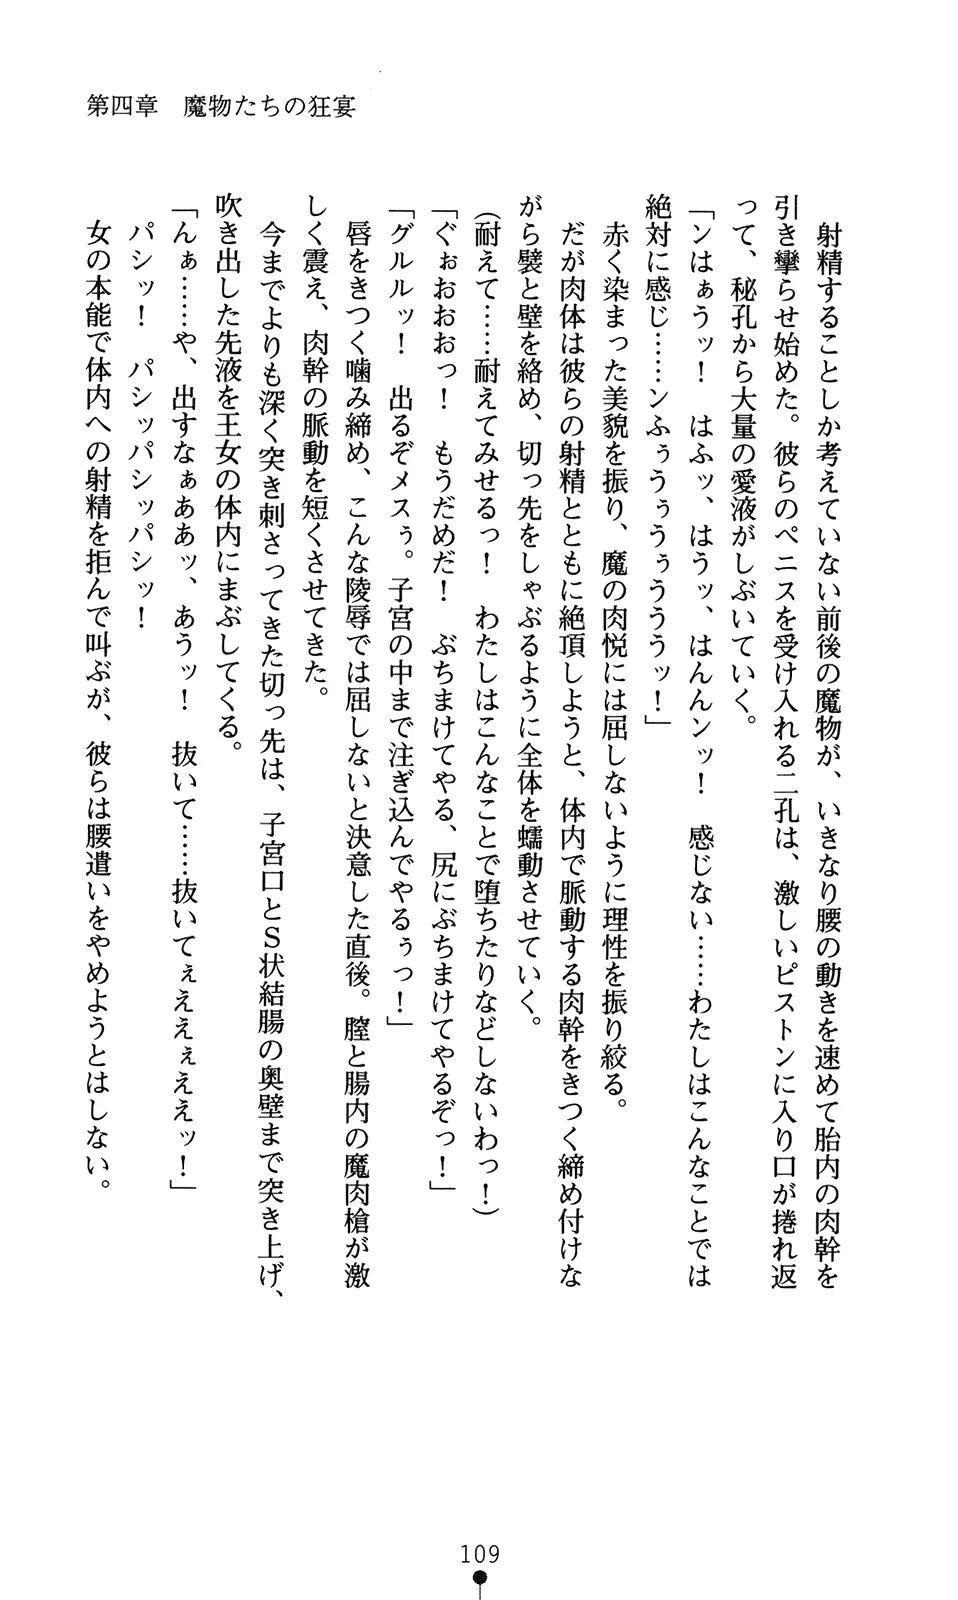 第四章　魔物たちの狂宴
　射精することしか考えていない前後の魔物が、いきなり腰の動きを速めて胎内の肉幹を
引き攣らせ始めた。彼らのペニスを受け入れる二孔は、激しいピストンに入り口が捲れ返
って、秘孔から大量の愛液がしぶいていく。
「ンはぁうッ！　はふッ、はうッ、はんんンッ！　感じない……わたしはこんなことでは
絶対に感じ……ンふぅうぅうぅうううッ！」
　赤く染まった美貌を振り、魔の肉悦には屈しないように理性を振り絞る。
　だが肉体は彼らの射精とともに絶頂しようと、体内で脈動する肉幹をきつく締め付けな
がら襞と壁を絡め、切っ先をしゃぶるように全体を蠕動させていく。
（耐えて……耐えてみせるっ！　わたしはこんなことで堕ちたりなどしないわっ！）
「ぐぉおおおっ！　もうだめだ！　ぶちまけてやる、尻にぶちまけてやるぞっ！」
「グルルッ！　出るぞメスぅ。子宮の中まで注ぎ込んでやるぅっ！」
　唇をきつく噛み締め、こんな陵辱では屈しないと決意した直後。膣と腸内の魔肉槍が激
しく震え、肉幹の脈動を短くさせてきた。
　今までよりも深く突き刺さってきた切っ先は、子宮口とＳ状結腸の奥壁まで突き上げ、
吹き出した先液を王女の体内にまぶしてくる。
「んぁ……や、出すなぁああッ、あうッ！　抜いて……抜いてぇええぇええッ！」
　パシッ！　パシッパシッパシッ！
　女の本能で体内への射精を拒んで叫ぶが、彼らは腰遣いをやめようとはしない。
109